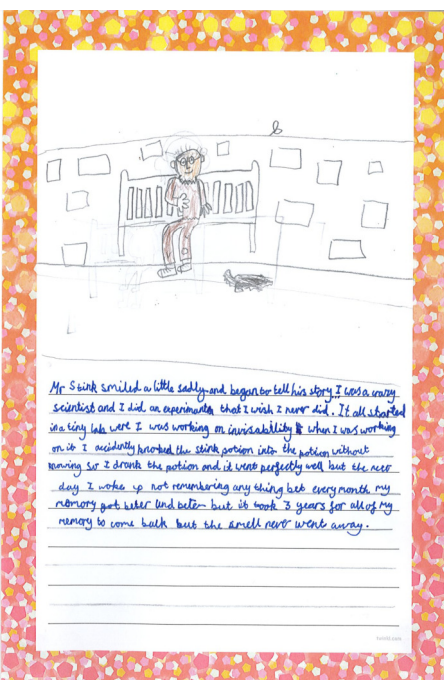 Mr Stink smiled a little sadly and began to tell his story... I was a crazy
scientist and I did an experiment that I wish I never did. It all started
in a tiny lab were I was working on invisability when I was working
on it I accidently knocked the stink potion into the potion without
knowing so I drank the potion and it went perfectly well but the next
day I woke up not remembering any thing but every month my
memory got beter and beter but it took 3 years for all of my
memory to come back but the smell never went away.